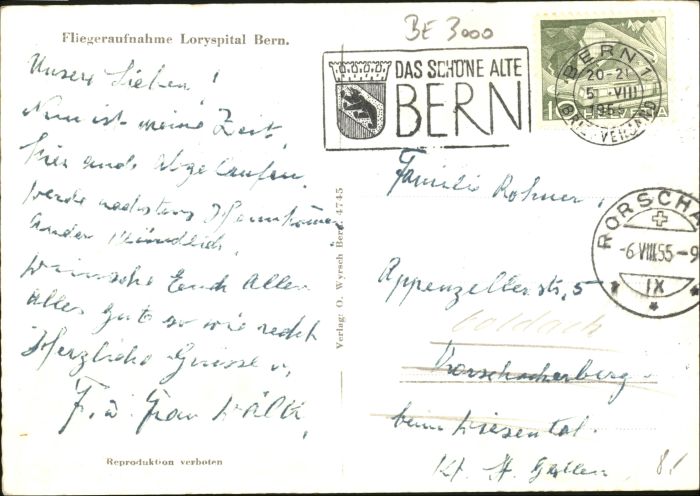 Fliegeraufnahme Loryspital Bern.
Unsere Lieben!
Nun ist meine Zeit,
hier auch abgelaufen,
werde nächstens Heimkommen
Wünsche Euch Allen
alles gute so wie recht
Herzliche Grüsse v,
F. u Frau Wälti,
Reproduktion verboten
Verlag: O. Wyrsch Bern 4745
BE 3000
DAS SCHÖNE ALTE
BERN
BERN 1
20-21
5. VIII
1955
BRIEFVERSAND
10 HELVETIA
Familie Rohner,
Appenzellerstr, 5
Goldach
Rorschacherberg
beim Wiesental.
Kt. St. Gallen
RORSCHA
-6.VIII.55-9
IX